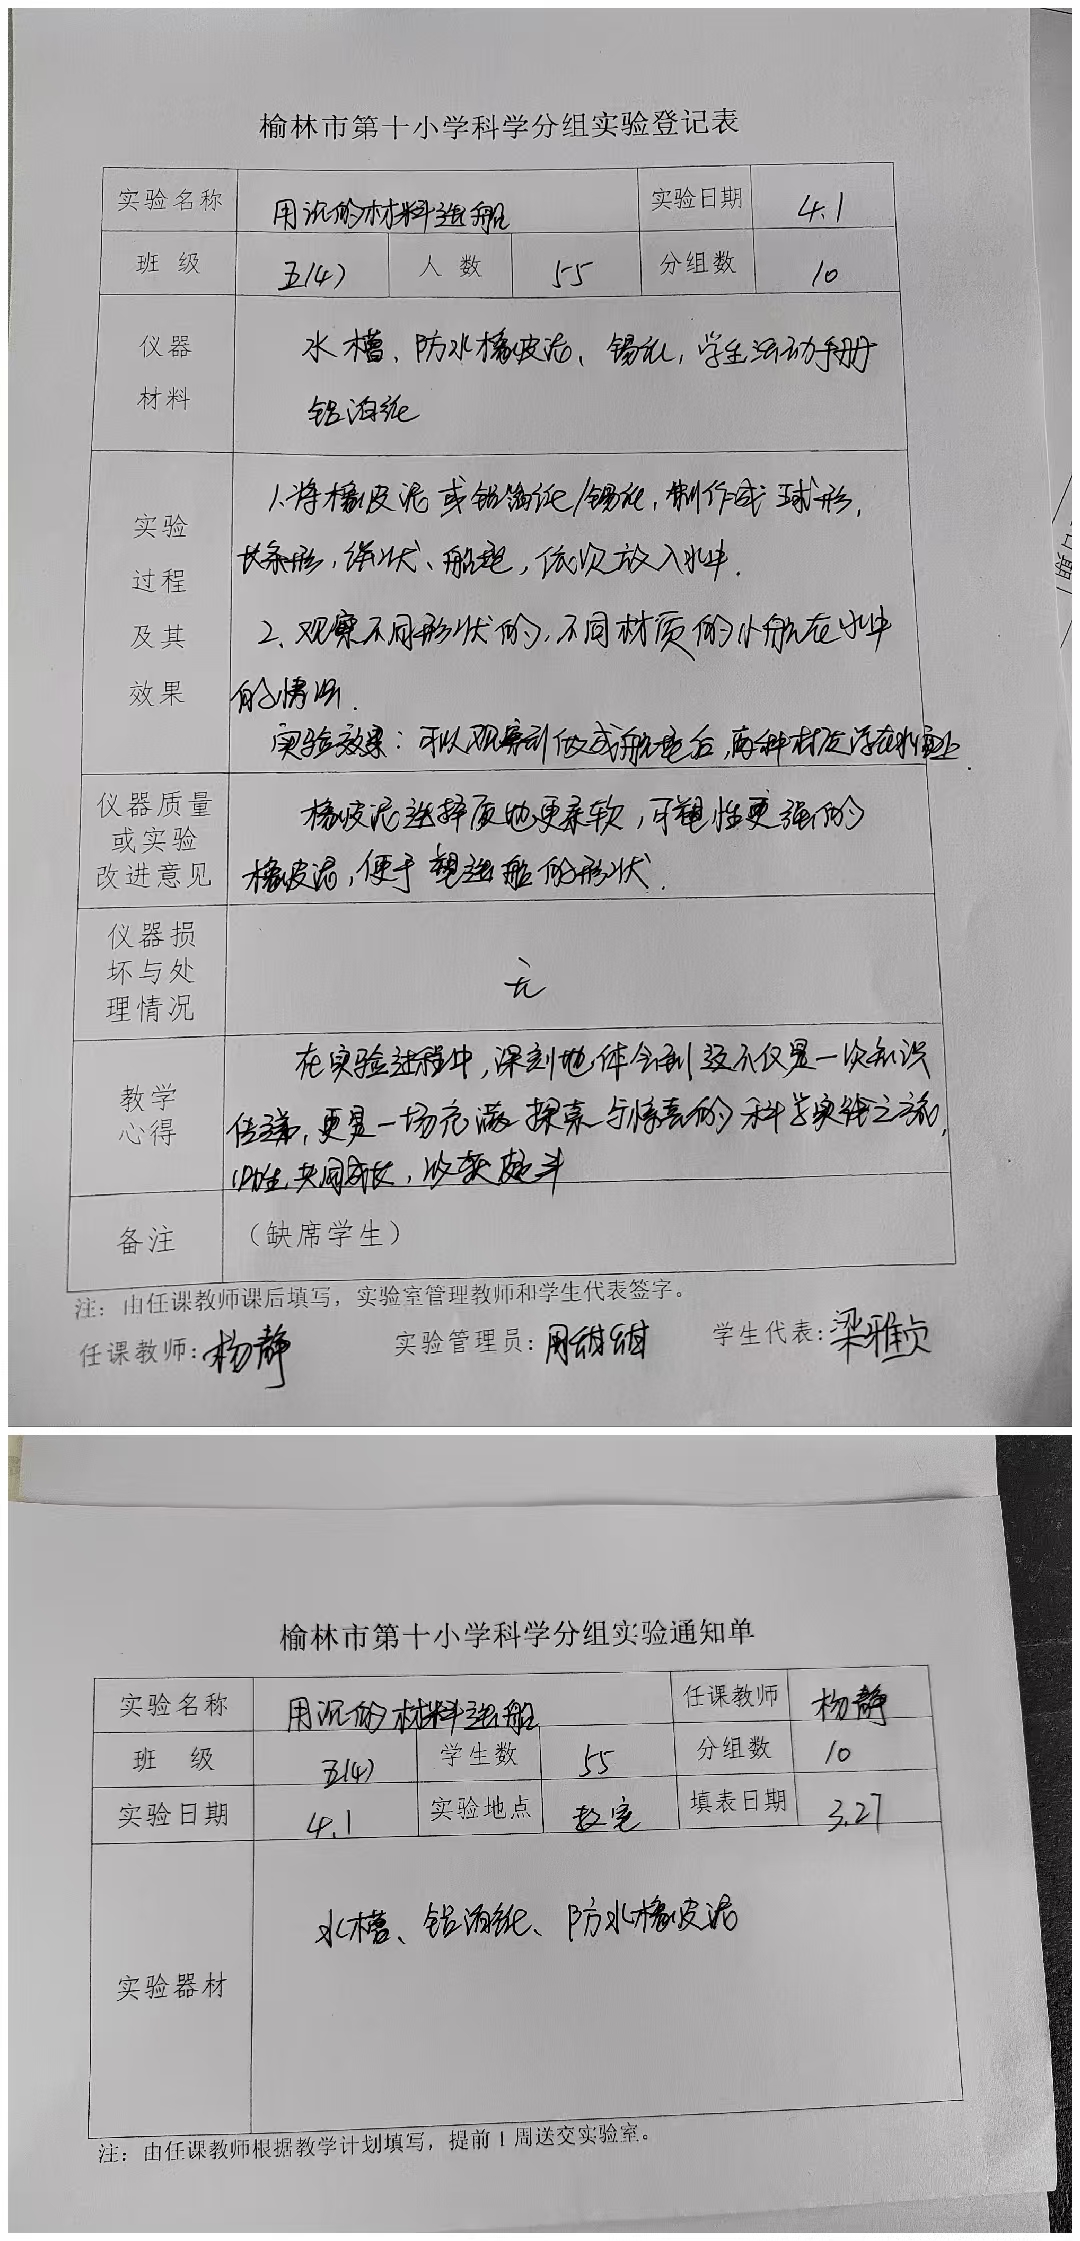 榆林市第十小学科学分组实验登记表
实验名称 用沉的材料造船 实验日期 4.1
班 级 五(4) 人 数 55 分组数 10
仪器 水槽、防水橡皮泥、锡纸，学生活动手册
材料 铝泊纸
实验 1.将橡皮泥或铝箔纸/锡纸，制作成球形，
过程 长条形，碗状、船型，依次放入水中.
及其 2、观察不同形状的，不同材质的小船在水中
效果 的情况.
实验效果：可以观察到做成船型后，两种材质浮在水面上.
仪器质量 橡皮泥选择质地更柔软，可塑性更强的
或实验 橡皮泥，便于塑造船的形状.
改进意见
仪器损
坏与处 无
理情况
教学 在实验过程中，深刻地体会到这不仅是一次知识
心得 传递，更是一场充满探索与惊喜的科学实验之旅，
师生共同成长，收获颇丰
备注 （缺席学生）
注：由任课教师课后填写，实验室管理教师和学生代表签字。
任课教师：杨静 实验管理员：周甜甜 学生代表：梁雅贞
日期
榆林市第十小学科学分组实验通知单
实验名称 用沉的材料造船 任课教师 杨静
班 级 五(4) 学生数 55 分组数 10
实验日期 4.1 实验地点 教室 填表日期 3.27
水槽、铝泊纸、防水橡皮泥
实验器材
注：由任课教师根据教学计划填写，提前1周送交实验室。